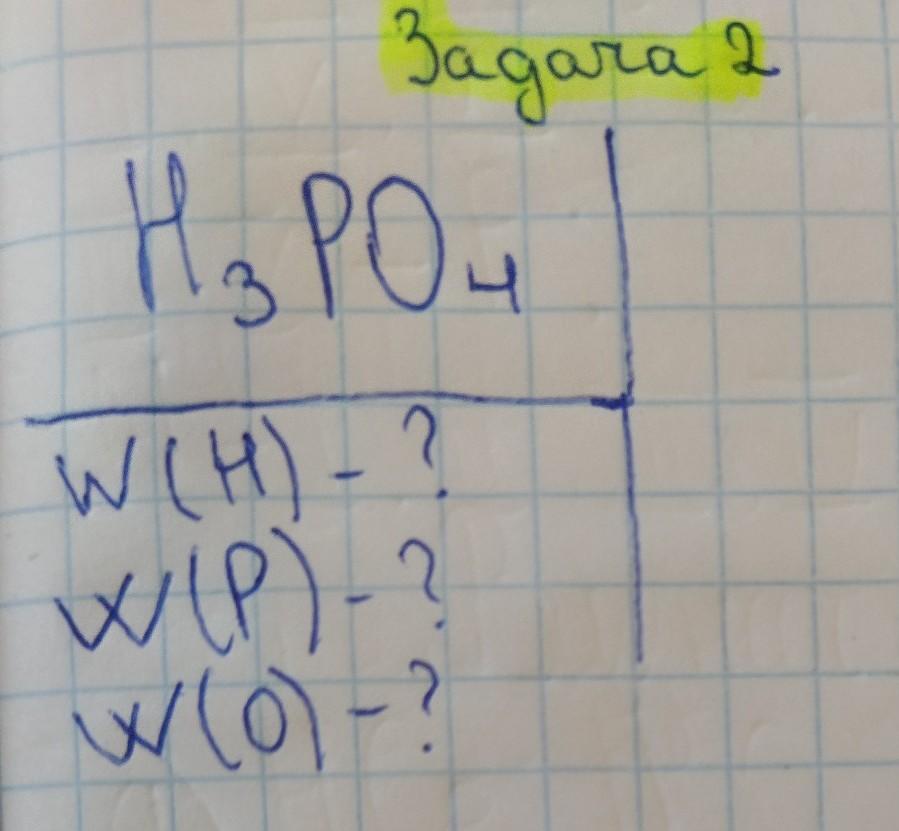 Задача 2
H₃PO₄
W(H) - ?
W(P) - ?
W(O) - ?